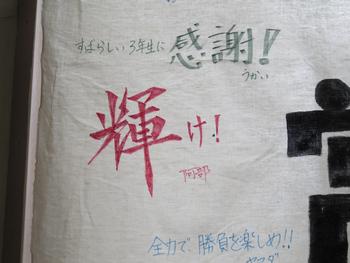 すばらしい3年生に
感謝!
うかい
輝け!
阿部
全力で、勝負を楽しめ!!
ヤマダ